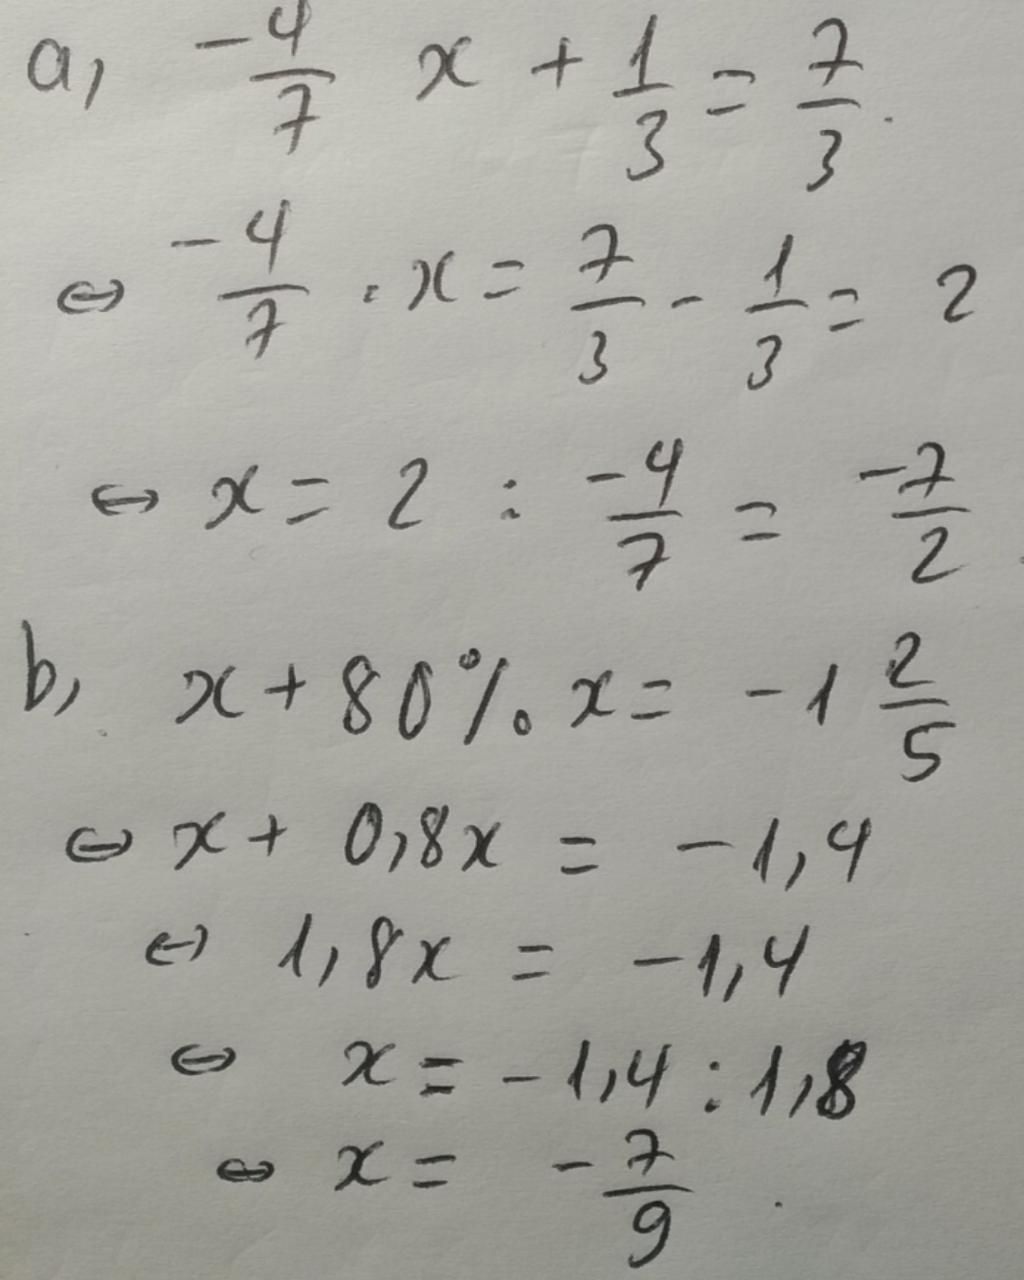 a, -4/7 x + 1/3 = 7/3.
⇔ -4/7 . x = 7/3 - 1/3 = 2
⇔ x = 2 : -4/7 = -7/2
b, x + 80%. x = -1 2/5
⇔ x + 0,8x = -1,4
⇔ 1,8x = -1,4
⇔ x = -1,4 : 1,8
⇔ x = -7/9.